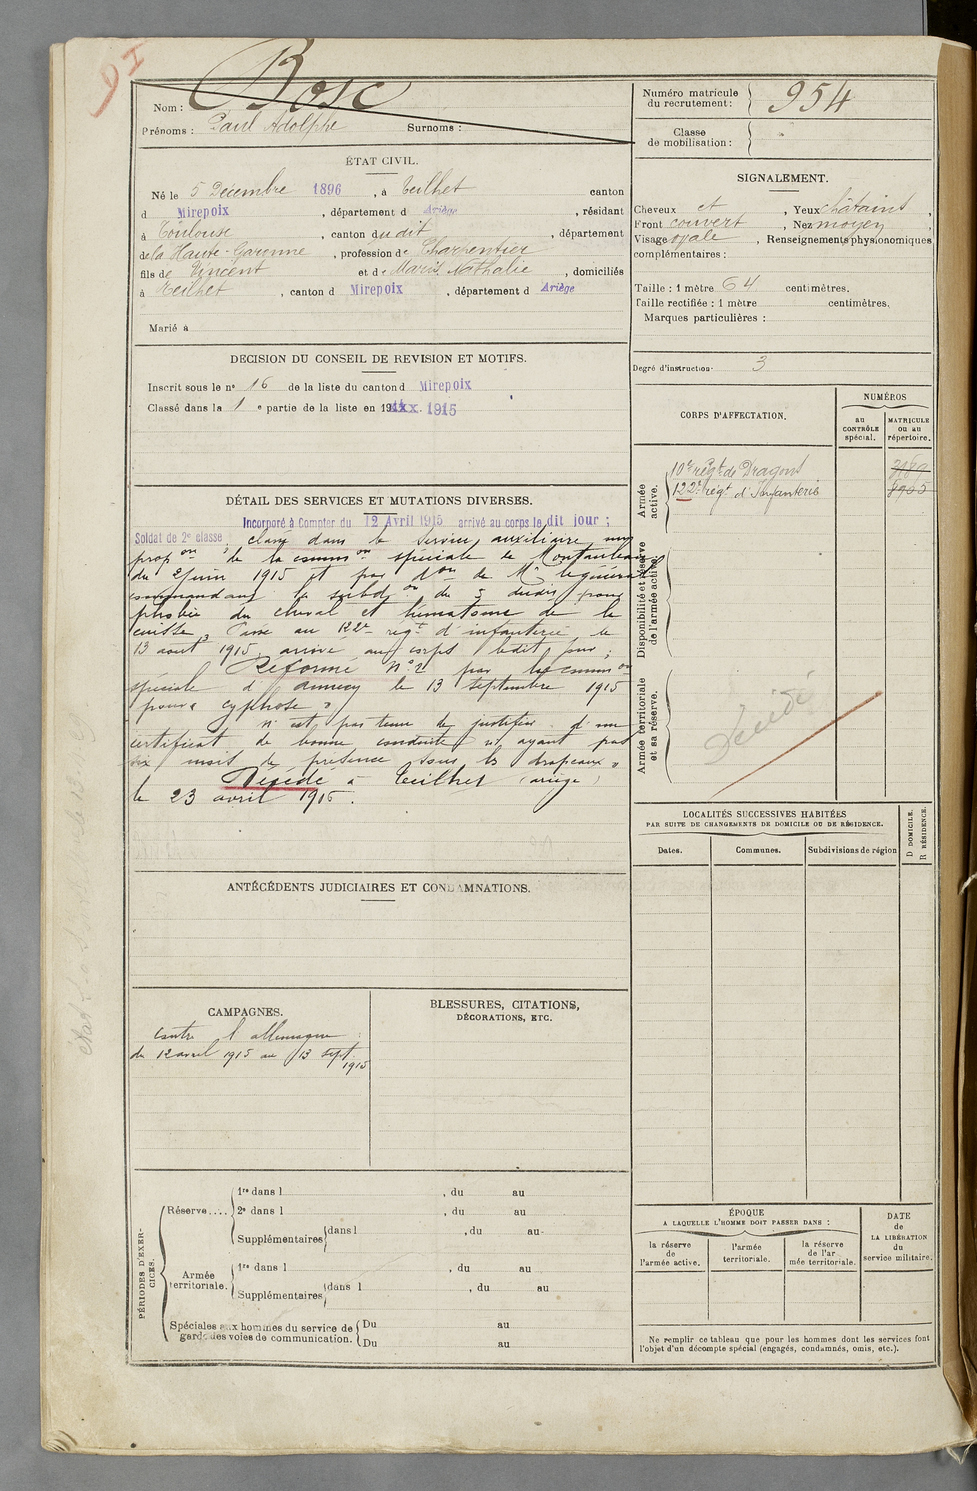 Nom : Bosc
Prénoms : Paul Adolphe Surnoms :
ÉTAT CIVIL.
Né le 5 Décembre 1896, à Teilhet canton
d Mirepoix, département d Ariège, résidant
à Toulouse, canton dudit, département
de la Haute-Garonne, profession de Charpentier
fils de Vincent et de Marie Nathalie, domiciliés
à Teilhet, canton d Mirepoix, département d Ariège
Marié à
DECISION DU CONSEIL DE REVISION ET MOTIFS.
Inscrit sous le n° 16 de la liste du canton d Mirepoix
Classé dans la 1 e partie de la liste en 19 1915
DÉTAIL DES SERVICES ET MUTATIONS DIVERSES.
Incorporé à Compter du 12 Avril 1915 arrivé au corps le dit jour ;
Soldat de 2e classe, classé dans le service auxiliaire sur
propon de la common spéciale de Montauban
du 2 juin 1915 et par don de Mr le général
commandant la subdon du 5 dudit pour
phobie du cheval et hématome de la
cuisse. Passé au 122e régt d'infanterie le
13 aout 1915, arrivé au corps ledit jour ;
Réformé n° 2 par la common
spéciale d'Annecy le 13 septembre 1915
pour « cyphose »
N'est pas tenu de justifier d'un
certificat de bonne conduite n'ayant pas
six mois de présence sous les drapeaux »
Décédé à Teilhet (ariège)
le 23 avril 1916.
ANTÉCÉDENTS JUDICIAIRES ET CONDAMNATIONS.
CAMPAGNES.
Contre l'allemagne :
du 12 avril 1915 au 13 sept.
1915
BLESSURES, CITATIONS,
DÉCORATIONS, ETC.
PÉRIODES D'EXERCICES.
Réserve....
1re dans l , du au
2e dans l , du au
Supplémentaires dans l , du au
Armée territoriale.
1re dans l , du au
Supplémentaires dans l , du au
Spéciales aux hommes du service de
garde des voies de communication.
Du au
Du au
Numéro matricule
du recrutement : 954
Classe
de mobilisation :
SIGNALEMENT.
Cheveux et, Yeux châtains,
Front couvert, Nez moyen,
Visage ovale, Renseignements physionomiques
complémentaires :
Taille : 1 mètre 64 centimètres.
Taille rectifiée : 1 mètre centimètres.
Marques particulières :
Degré d'instruction 3
CORPS D'AFFECTATION.
NUMÉROS
au
CONTRÔLE
spécial.
MATRICULE
ou au
répertoire.
Armée
active.
10e régt de Dragons
122e régt d'Infanterie 8905
Disponibilité et réserve
de l'armée active.
Armée territoriale
et sa réserve.
Décédé
LOCALITÉS SUCCESSIVES HABITÉES
PAR SUITE DE CHANGEMENTS DE DOMICILE OU DE RÉSIDENCE.
Dates.
Communes.
Subdivisions de région
D DOMICILE.
R RÉSIDENCE.
ÉPOQUE
A LAQUELLE L'HOMME DOIT PASSER DANS :
la réserve
de
l'armée active.
l'armée
territoriale.
la réserve
de l'ar
mée territoriale.
DATE
de
LA LIBÉRATION
du
service militaire.
Ne remplir ce tableau que pour les hommes dont les services font
l'objet d'un décompte spécial (engagés, condamnés, omis, etc.).